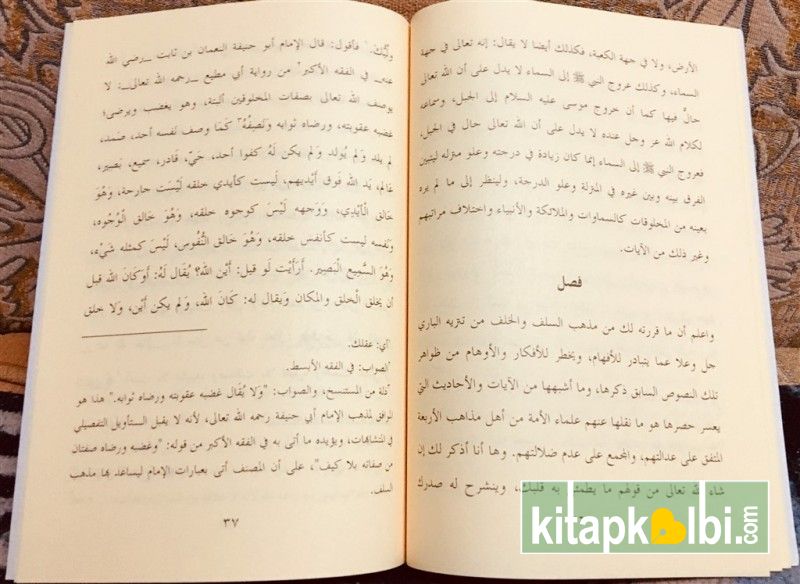 الأرض، ولا في جهة الكعبة، فكذلك أيضا لا يقال: إنه تعالى في جهة
السماء، وكذلك عروج النبي ﷺ إلى السماء لا يدل على أن الله تعالى
حالٌّ فيها كما أن خروج موسى عليه السلام إلى الجبل، وسماعه
لكلام الله عز وجل عنده لا يدل على أن الله تعالى حال في الجبل،
فعروج النبي ﷺ إلى السماء إنما كان زيادة في درجته وعلو منزله ليتبين
الفرق بينه وبين غيره في المنزلة وعلو الدرجة، ولينظر إلى ما لم يره
بعينه من المخلوقات كالسماوات والملائكة والأنبياء واختلاف مراتبهم
وغير ذلك من الآيات.
فصل
واعلم أن ما قررته لك من مذهب السلف والخلف من تنزيه الباري
جل وعلا عما يتبادر للأفهام، ويخطر للأفكار والأوهام من ظواهر
تلك النصوص السابق ذكرها، وما أشبهها من الآيات والأحاديث التي
يعسر حصرها هو ما نقلها عنهم علماء الأمة من أهل مذاهب الأربعة
المتفق على عدالتهم، والمجمع على عدم ضلالتهم. وها أنا أذكر لك إن
شاء الله تعالى من قولهم ما يطمئن به قلبك، وينشرح له صدرك
ولبُّك. فأقول: قال الإمام أبو حنيفة النعمان بن ثابت _رضي الله
عنه_ في الفقه الأكبر من رواية أبي مطيع _رحمه الله تعالى_: لا
يوصف الله تعالى بصفات المخلوقين ألبتة، وهو يغضب ويرضى؛
غضبه عقوبته، ورضاه ثوابه وَنَصِفُهُ كَمَا وصف نفسه أحد، صَمَد،
لم يلد وَلم يُولد وَلم يكن لَهُ كفوا أحد، حَيّ، قَادر، سميع، بَصير،
عَالم، يَد الله فَوق أَيْديهم، لَيست كأيدي خلقه لَيْسَت جارحة، وَهُوَ
خَالق الْأَيْدِي، وَوَجهه لَيْسَ كوجوه خلقه، وَهُوَ خَالق الْوُجُوه،
وَنَفسه ليست كأنفس خلقه، وَهُوَ خَالق النُّفُوس، لَيْسَ كمثله شَيْء،
وَهُوَ السَّمِيع الْبَصِير. أَرَأَيْت لَو قيل: أَيْن الله؟ يُقَال لَهُ: أَوكَانَ الله قبل
أن يخلق الْخلق والمكان وَيقال له: كَانَ الله، وَلم يكن أَيْن، وَلَا خلق
أي: عقلك.
الصواب: في الفقه الأبسط.
زلة من المستنسخ، والصواب: "وَلا يُقَال غضبه عقوبته ورضاه ثوابه." هذا هو
الموافق لمذهب الإمام أبي حنيفة رحمه الله تعالى، لأنه لا يقبل التأويل التفصيلي
في المتشابهات، ويؤيده ما أتى به في الفقه الأكبر من قوله: "وغضبه ورضاه صفتان
من صفاته بلا كيف"، على أن المصنف أتى بعبارات الإمام ليساعد بها مذهب
السلف.
٣٧
kitapkalbi.com